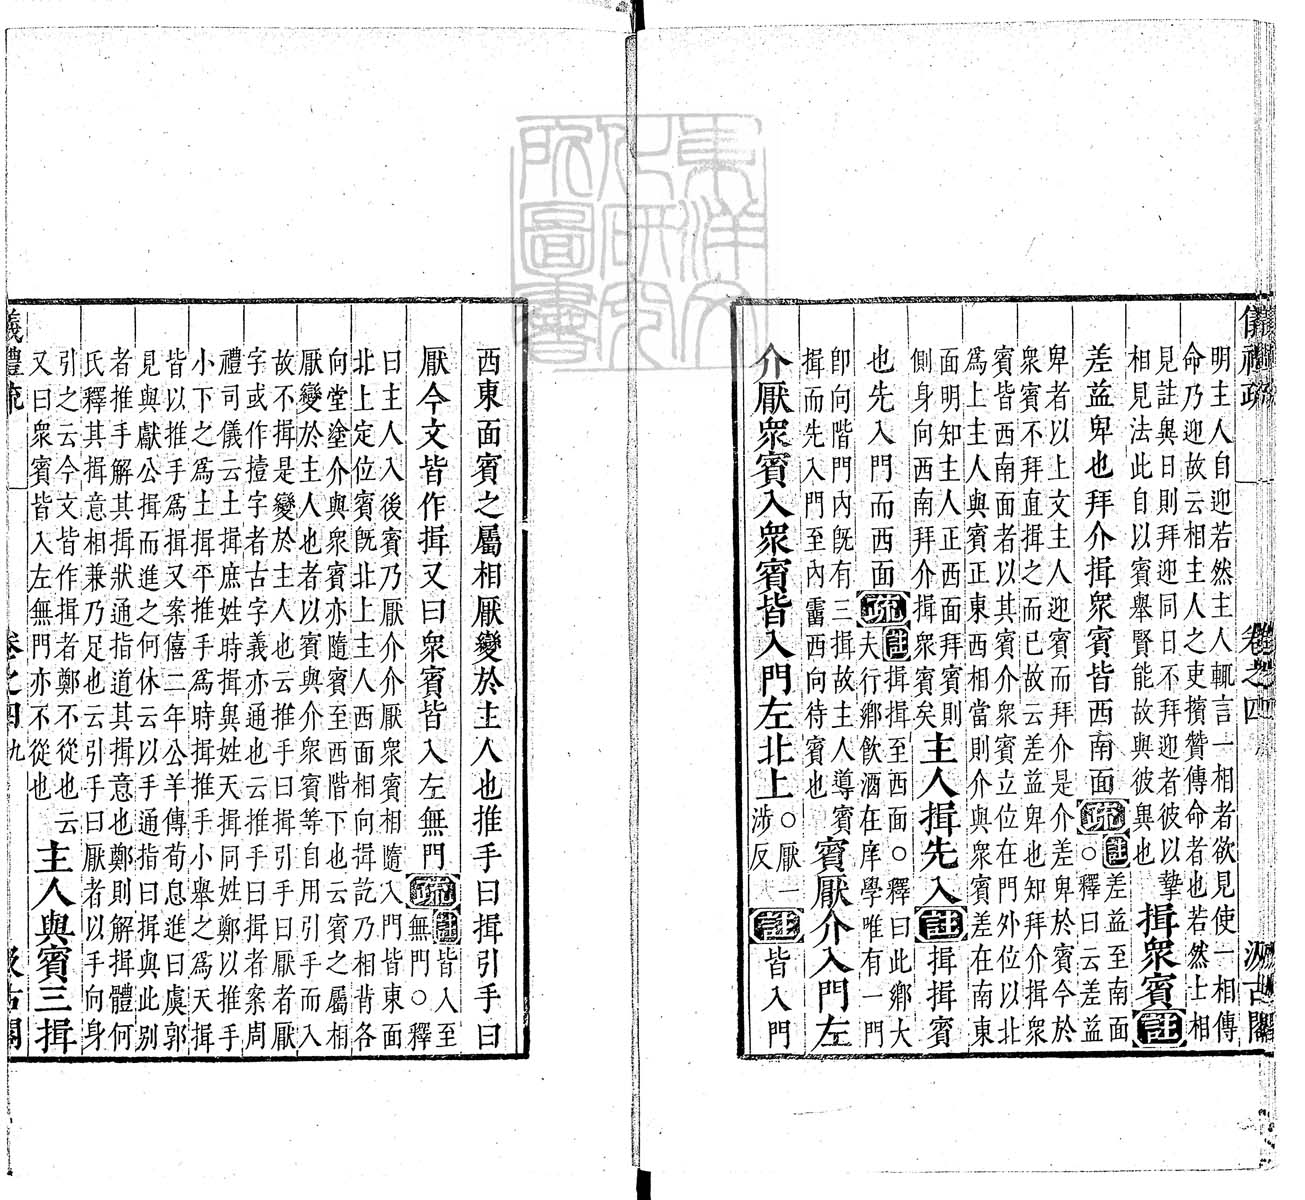 儀禮疏 卷之四 汲古閣
明主人自迎若然主人輒言一相者欲見使一相傳
命乃迎故云相主人之吏擯贊傳命者也若然士相
見註異日則拜迎同日不拜迎者彼以摯
相見法此自以賓舉賢能故與彼異也
揖衆賓註
差益卑也拜介揖衆賓皆西南面疏註差益至南面
○釋曰云差益
卑者以上文主人迎賓而拜介是介差卑於賓今於
衆賓不拜直揖之而已故云差益卑也知拜介揖衆
賓皆西南面者以其賓介衆賓立位在門外位以北
爲上主人與賓正東西相當則介與衆賓差在南東
面明知主人正西面拜賓則
側身向西南拜介揖衆賓矣
主人揖先入註揖揖賓
也先入門而西面疏註揖揖至西面○釋曰此鄉大
夫行鄉飲酒在庠學唯有一門
卽向階門內旣有三揖故主人導賓
揖而先入門至內霤西向待賓也
賓厭介入門左
介厭衆賓入衆賓皆入門左北上○厭一
涉反
註皆入門
西東面賓之屬相厭變於主人也推手曰揖引手曰
厭今文皆作揖又曰衆賓皆入左無門疏註皆入至
無門○釋
曰主人入後賓乃厭介介厭衆賓相隨入門皆東面
北上定位賓旣北上主人西面相向揖訖乃相背各
向堂塗介與衆賓亦隨賓至西階下也云賓之屬相
厭變於主人也者以賓與介衆賓等自用引手而入
故不揖是變於主人也云推手曰揖引手曰厭者厭
字或作撎字者古字義亦通也云推手曰揖者案周
禮司儀云土揖庶姓時揖異姓天揖同姓鄭以推手
小下之爲土揖平推手爲時揖推手小舉之爲天揖
皆以推手爲揖又案僖二年公羊傳荀息進曰虞郭
見與獻公揖而進之何休云以手通指曰揖與此別
者推手解其揖狀通指道其揖意也鄭則解揖體何
氏釋其揖意相兼乃足也云引手曰厭者以手向身
引之云今文皆作揖者鄭不從也云
又曰衆賓皆入左無門亦不從也
主人與賓三揖
儀禮疏 卷之四 九 汲古閣
東洋文化研究所圖書